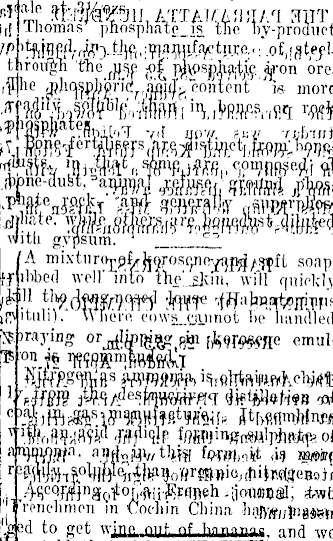 cale at 3½ozs.
Thomas phosphate is the by-product
obtained in the manufacture of steel
through the use of phosphatic iron ore.
The phosphoric acid content is more
readily soluble than in bones or rock
phosphates.
Bone fertilisers are distinct from bone-
dusts, in that some are composed of
bone-dust, animal refuse, ground phos-
phate rock, and generally superphos-
phate, while others are bonedust diluted
with gypsum.
A mixture of korosene and soft soap
rubbed well into the skin, will quickly
kill the long-nosed louse (Haematopinus
vituli). Where cows cannot be handled
spraying or dipping in korosene emul-
sion is recommended.
Nitrogen as ammonia is obtained chief-
ly from the destructive distillation of
coal in gas manufacture. It combines
with an acid radicle forming sulphate of
ammonia, and in this form it is more
readily soluble than organic nitrogen.
According to a French journal, two
Frenchmen in Cochin China have mana-
ged to get wine out of bananas, and wo